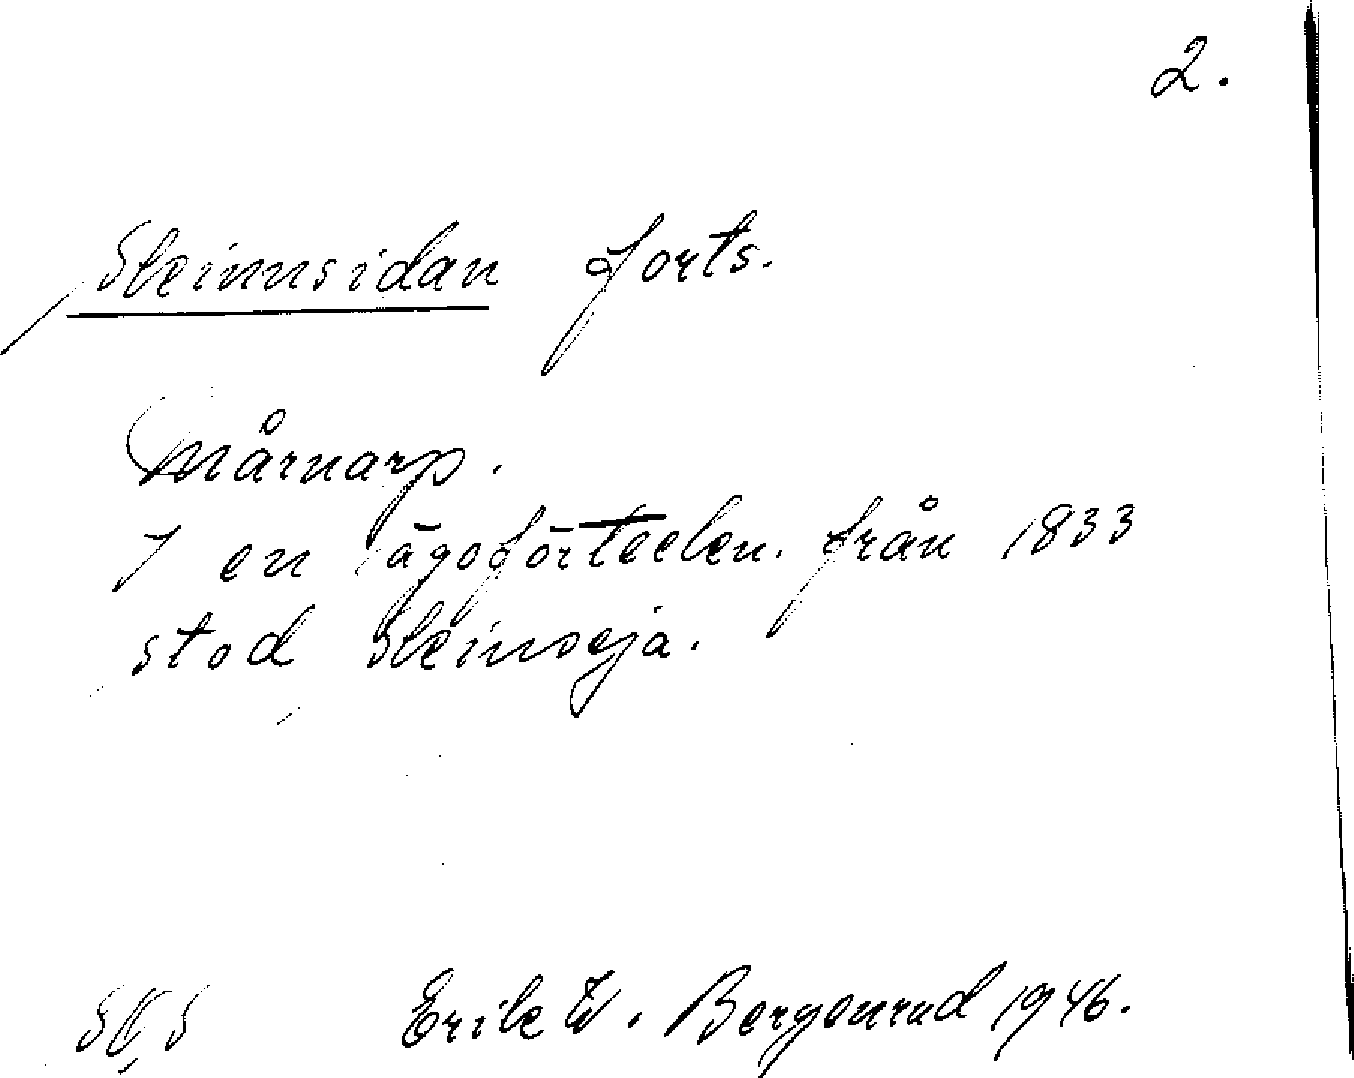 2.
Steinnsidan forts.
Mårnarp.
I en ägoförteckn. från 1833
stod Steinseja.
Erik W. Bergenrud 1946.